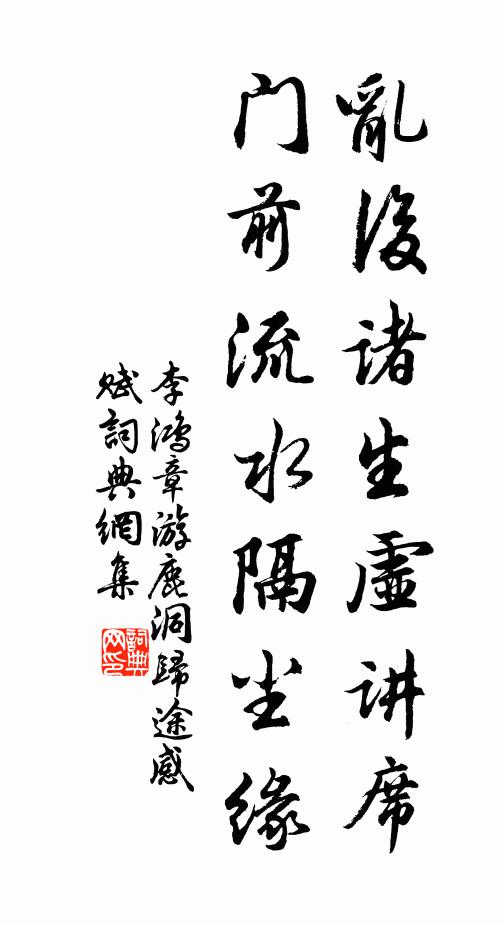 亂後諸生虛讲席
门前流水隔尘緣
李鴻章游鹿洞歸途感
赋詞典網集
詞典网印